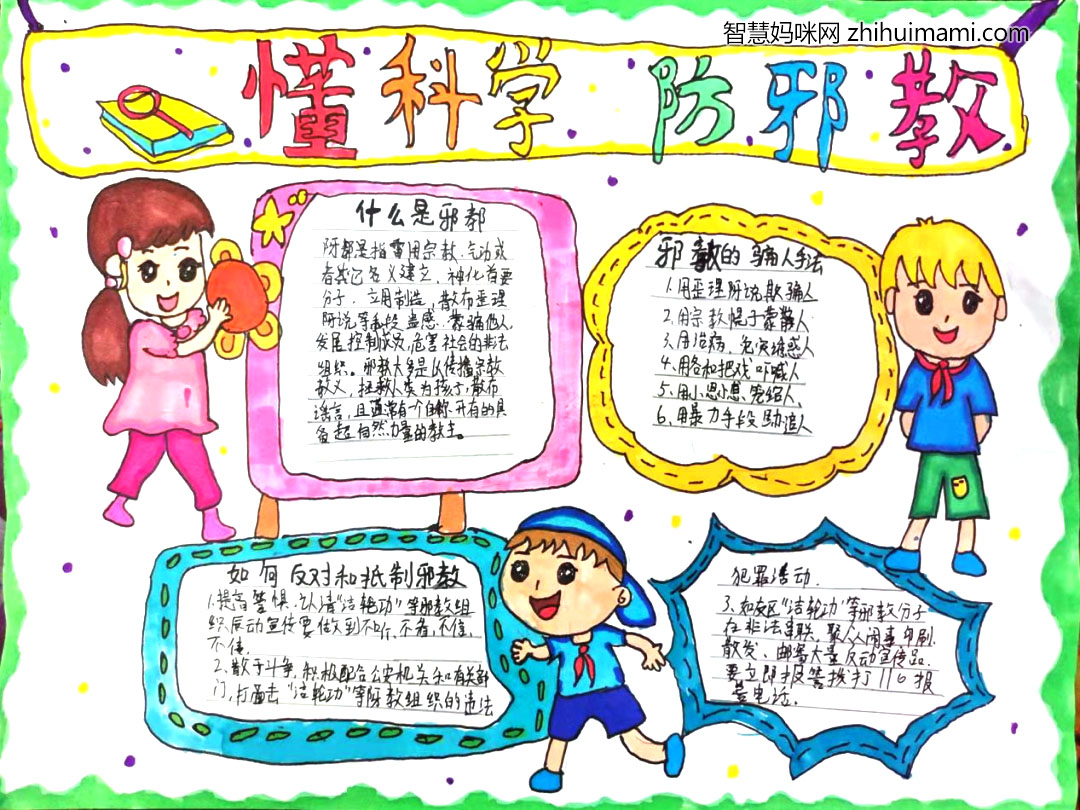 智慧妈咪网 zhihuimami.com
懂科学 防邪教
什么是邪教
邪教是指冒用宗教、气功或
者其它名义建立,神化首要
分子,利用制造,散布歪理
邪说等手段蛊惑、蒙骗他人,
发展控制成员,危害社会的非法
组织。邪教大多是以传播宗教
教义,拯救人类为孩子,散布
谣言,且通常有一个自称开有的具
备超自然力量的教主。
邪教的骗人手法
1.用歪理邪说欺骗人
2.用宗教幌子蒙骗人
3.用治病,免灾诱惑人
4.用各和把戏吓喊人
5.用小恩小惠笼络人
6.用暴力手段胁迫人
如何反对和抵制邪教
1.提高警惕.认清“法轮功”等邪教组
织反动宣传要做到不听、不看、不信、
不传.
2.敢于斗争,积极配合公安机关和有关部
门,打击“法轮功”等邪教组织的违法
犯罪活动.
3.如发现“法轮功”等邪教分子
在非法串联、聚众闹事印刷
散发、邮寄大量反动宣传品.
要立即报警拨打110报
警电话.